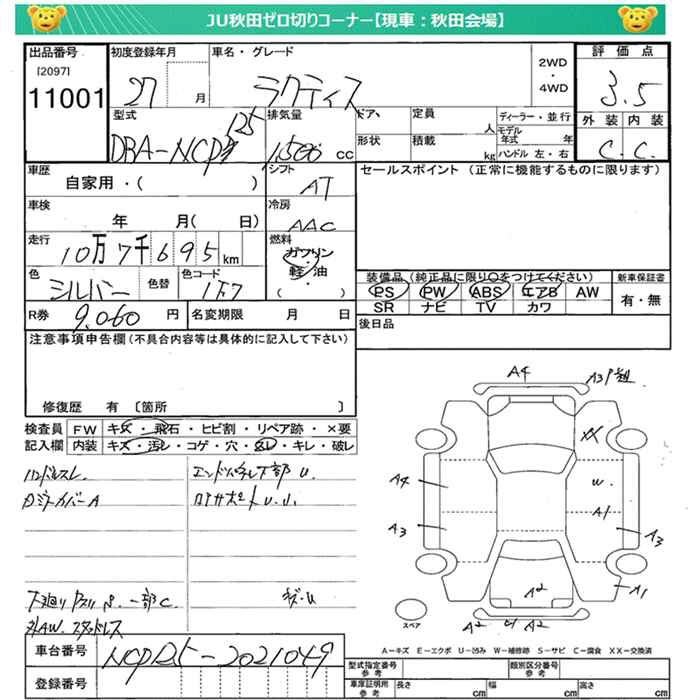 JU秋田ゼロ切りコーナー【現車：秋田会場】
出品番号
[2097]
11001
初度登録年月
27
月
車名・グレード
ラクティス
2WD
・
4WD
評価点
3.5
外装 内装
C. C.
型式
DBA-NCP125
排気量
1,500 cc
ドア、
形状
定員
人
積載
kg
ディーラー・並行
モデル年式 年
ハンドル 左・右
車歴
自家用・( )
シフト
AT
セールスポイント (正常に機能するものに限ります)
車検
年 月( 日)
冷房
AAC
走行
10万7千695km
燃料
ガソリン
軽・油
( ・ )
色
シルバー
色替
色コード
1F7
装備品(純正品に限り○をつけてください)
PS PW ABS エアB AW
SR ナビ TV カワ
新車保証書
有・無
R券 9,060 円
名変期限 月 日
後日品
注意事項申告欄(不具合内容等は具体的に記入して下さい)
修復歴 有 〔箇所 〕
検査員 FW キズ・飛石・ヒビ割・リペア跡・×要
記入欄 内装 キズ・汚レ・コゲ・穴・スレ・キレ・破レ
ハンドルスレ.
エンドパネル下部 U.
ロアサポート U.U.
A4
A3
XX
A4
W
A1
A3
A3
A2
A1
A2
A2
スペア
A-キズ E-エクボ U-凹み W-補修跡 S-サビ C-腐食 XX-交換済
車台番号
NCP125-2021049
登録番号
型式指定番号
参考
類別区分番号
参考
車庫証明用
参考
長さ cm
幅 cm
高さ cm